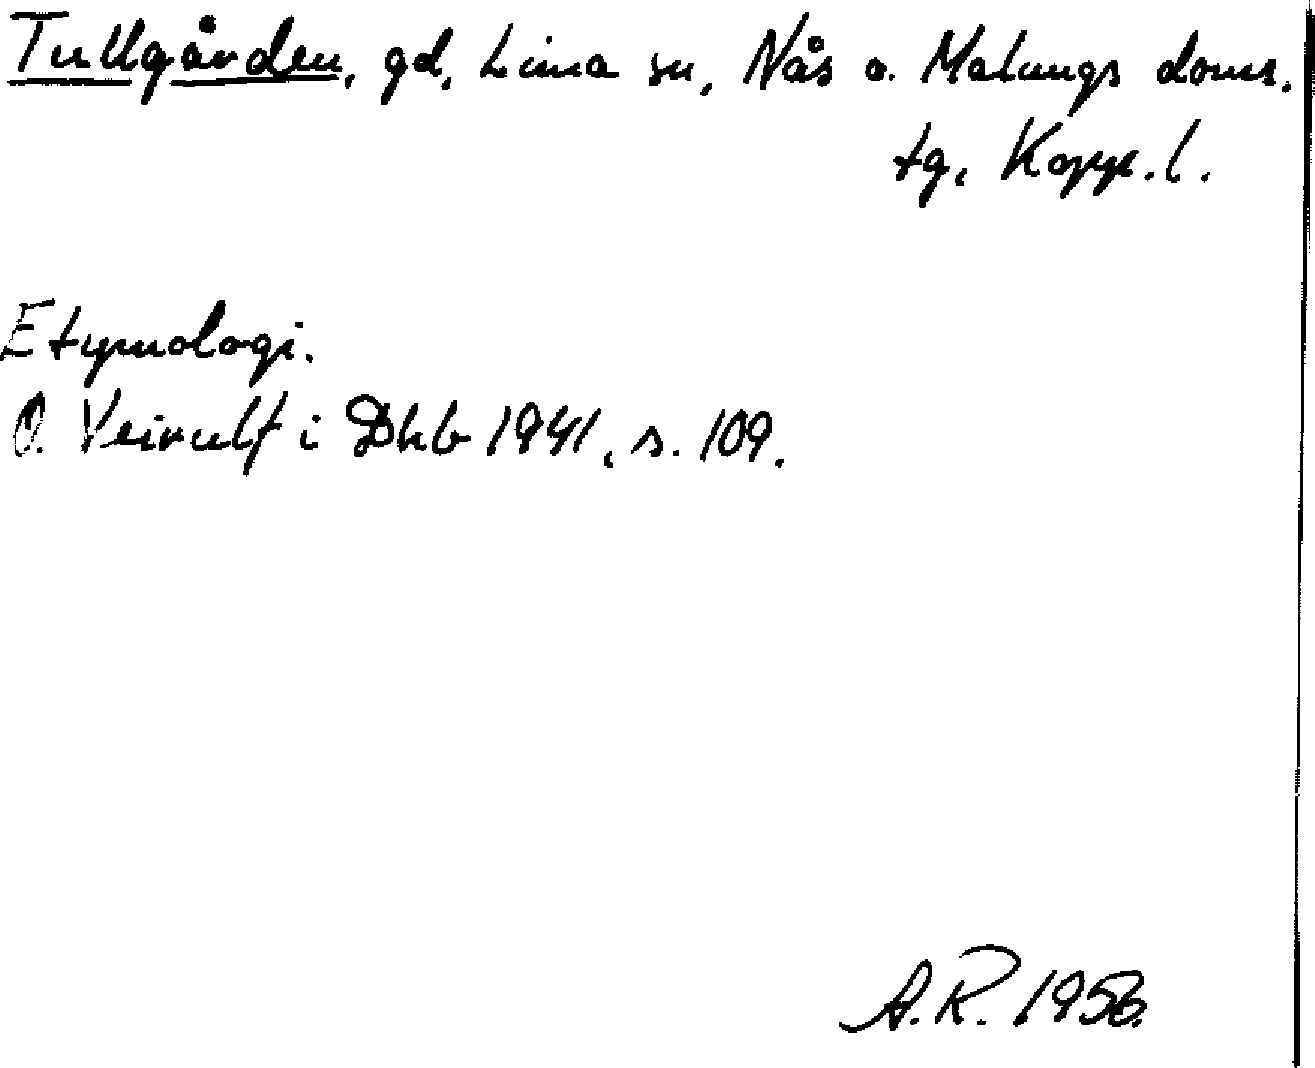 Tullgården, gd, Lima sn, Nås o. Malungs doms.
tg, Kopp.l.
Etymologi.
O. Veirulf i Dhb 1941, s. 109.
A.R. 1956.